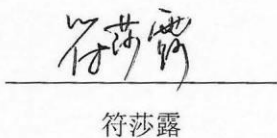 符莎露
符莎露